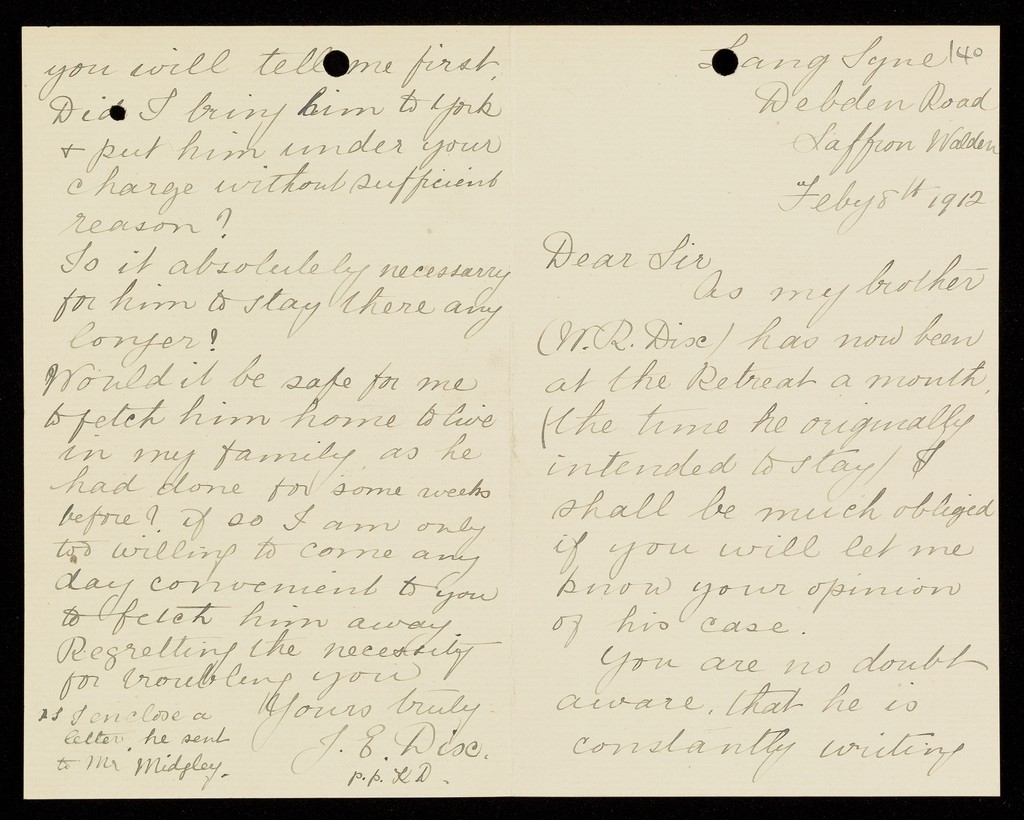 Lang Syne
140
Debden Road
Saffron Walden
Feby 8th 1912
Dear Sir
As my brother
(W. R. Dix) has now been
at the Retreat a month,
(the time he originally
intended to stay) I
shall be much obliged
if you will let me
know your opinion
of his case.
You are no doubt
aware, that he is
constantly writing
you will tell me first.
Did I bring him to York
+ put him under your
charge without sufficient
reason?
Is it absolutely necessarry
for him to stay there any
longer?
Would it be safe for me
to fetch him home to live
in my family, as he
had done for some weeks
before? if so I am only
too willing to come any
day convenient to you
to fetch him away
Regretting the necessity
for troubling you
Yours truly
J. E. Dix.
p.p. K D.
PS I enclose a
letter, he sent
to Mr Midgley.